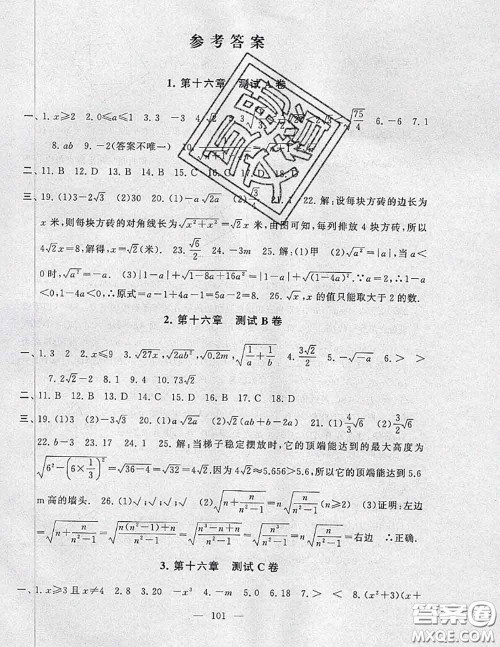 参考答案
1. 第十六章 测试A卷
一、1. x≥2 2. 0≤a≤1 3. 3 -3 4. 6. -6 7. 1
8. ab 9. -2(答案不唯一) 10.
二、11. B 12. D 13. B 14. B 15. C 18. D
三、19. (1)3-2√3 20. 21. 22. 解:设每块方砖的边长为
x米,则每块方砖的对角线长为√(x²+x²)=√2x米,由图可知,每列排放4块方砖,所以
4√2x=8.解得,x=√2(米). 23. √6/2 24. -3m 25. 解:(1)甲 (2)|a|,当a<
0时,√a²=-a (3)|1-a|+√(1-8a+16a²)=|1-a|+√(1-4a)².∵a>2,∴1-a<
0,1-4a<0,∴原式=a-1+4a-1=5a-2. 26. √x,x的值只能取大于2的数.
2. 第十六章 测试B卷
一、1. 3 2. x≤9 3. √27x,√2ab²,√0.2m,√(1/a+1/b) 4. 3√2/2 5. -√a 6. > >
7. 2√2-2 8. 1 9. 4 10. 73√2
二、11. D 12. C 13. C 14. B 15. D 16. B 17. C 18. D
三、19. (1)-3√3 (2)(ab+2a-b)√ab 21. (1)4/3√6 (2)3/2√6
22. b-a 23. 17 24. 1 25. 解:当梯子稳定摆放时,它的顶端能达到的最大高度为
√(6²-(6×1/3)²)=√(36-4)=√32=4√2.因为4√2≈5.656>5.6,所以它的顶端能达到5.6
m高的墙头. 26. (1)√;√;√;√ (2)√(n+n/(n²-1))=n√(n/(n²-1))(n≥2) (3)证明:左边
=√(n+n/(n²-1))=√((n(n²-1)+n)/(n²-1))=√((n³-n+n)/(n²-1))=√(n³/(n²-1))=n√(n/(n²-1))=右边 ∴正确.
3. 第十六章 测试C卷
一、1. x≥3且x≠4 2. 8 3. 20 -x³ 4. -m 5. 0 6. 18 7. > < 8. (x²+3)(x+
— 101 —
答案圈
MXQE.COM